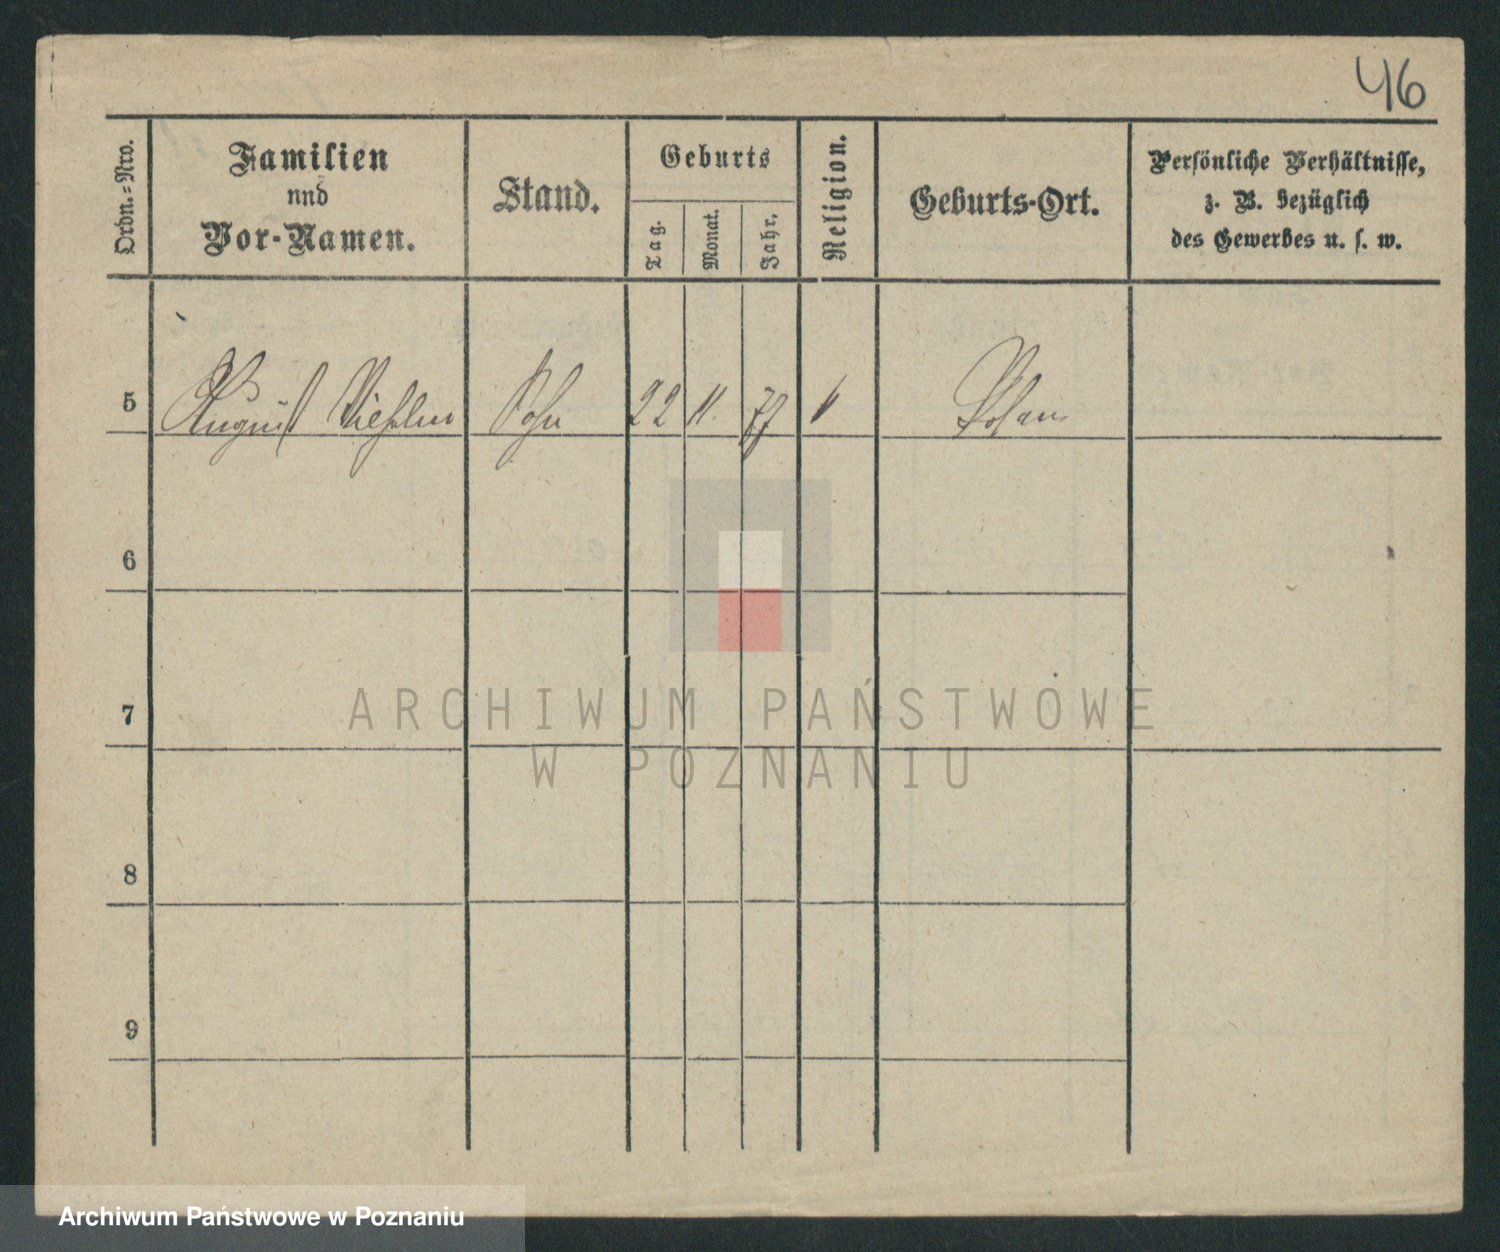 46
Ordn.=Nro.
Familien
nnd
Vor-Namen.
Stand.
Geburts
Tag.
Monat.
Jahr.
Religion.
Geburts-Ort.
Persönliche Verhältnisse,
z. B. bezüglich
des Gewerbes u. s. w.
5 August Sohn 22 11. 77
6
7
8
9
ARCHIWUM PAŃSTWOWE
W POZNANIU
Archiwum Państwowe w Poznaniu